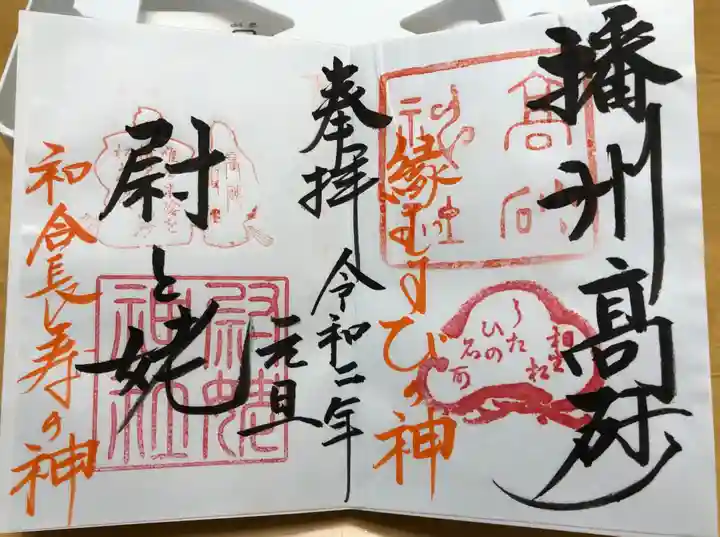 播州高砂
高砂
神社
縁むすびの神
相生
松
うた
ひの
石
奉拝
令和二年
元旦
尉と姥
尉姥
神社
和合長寿の神